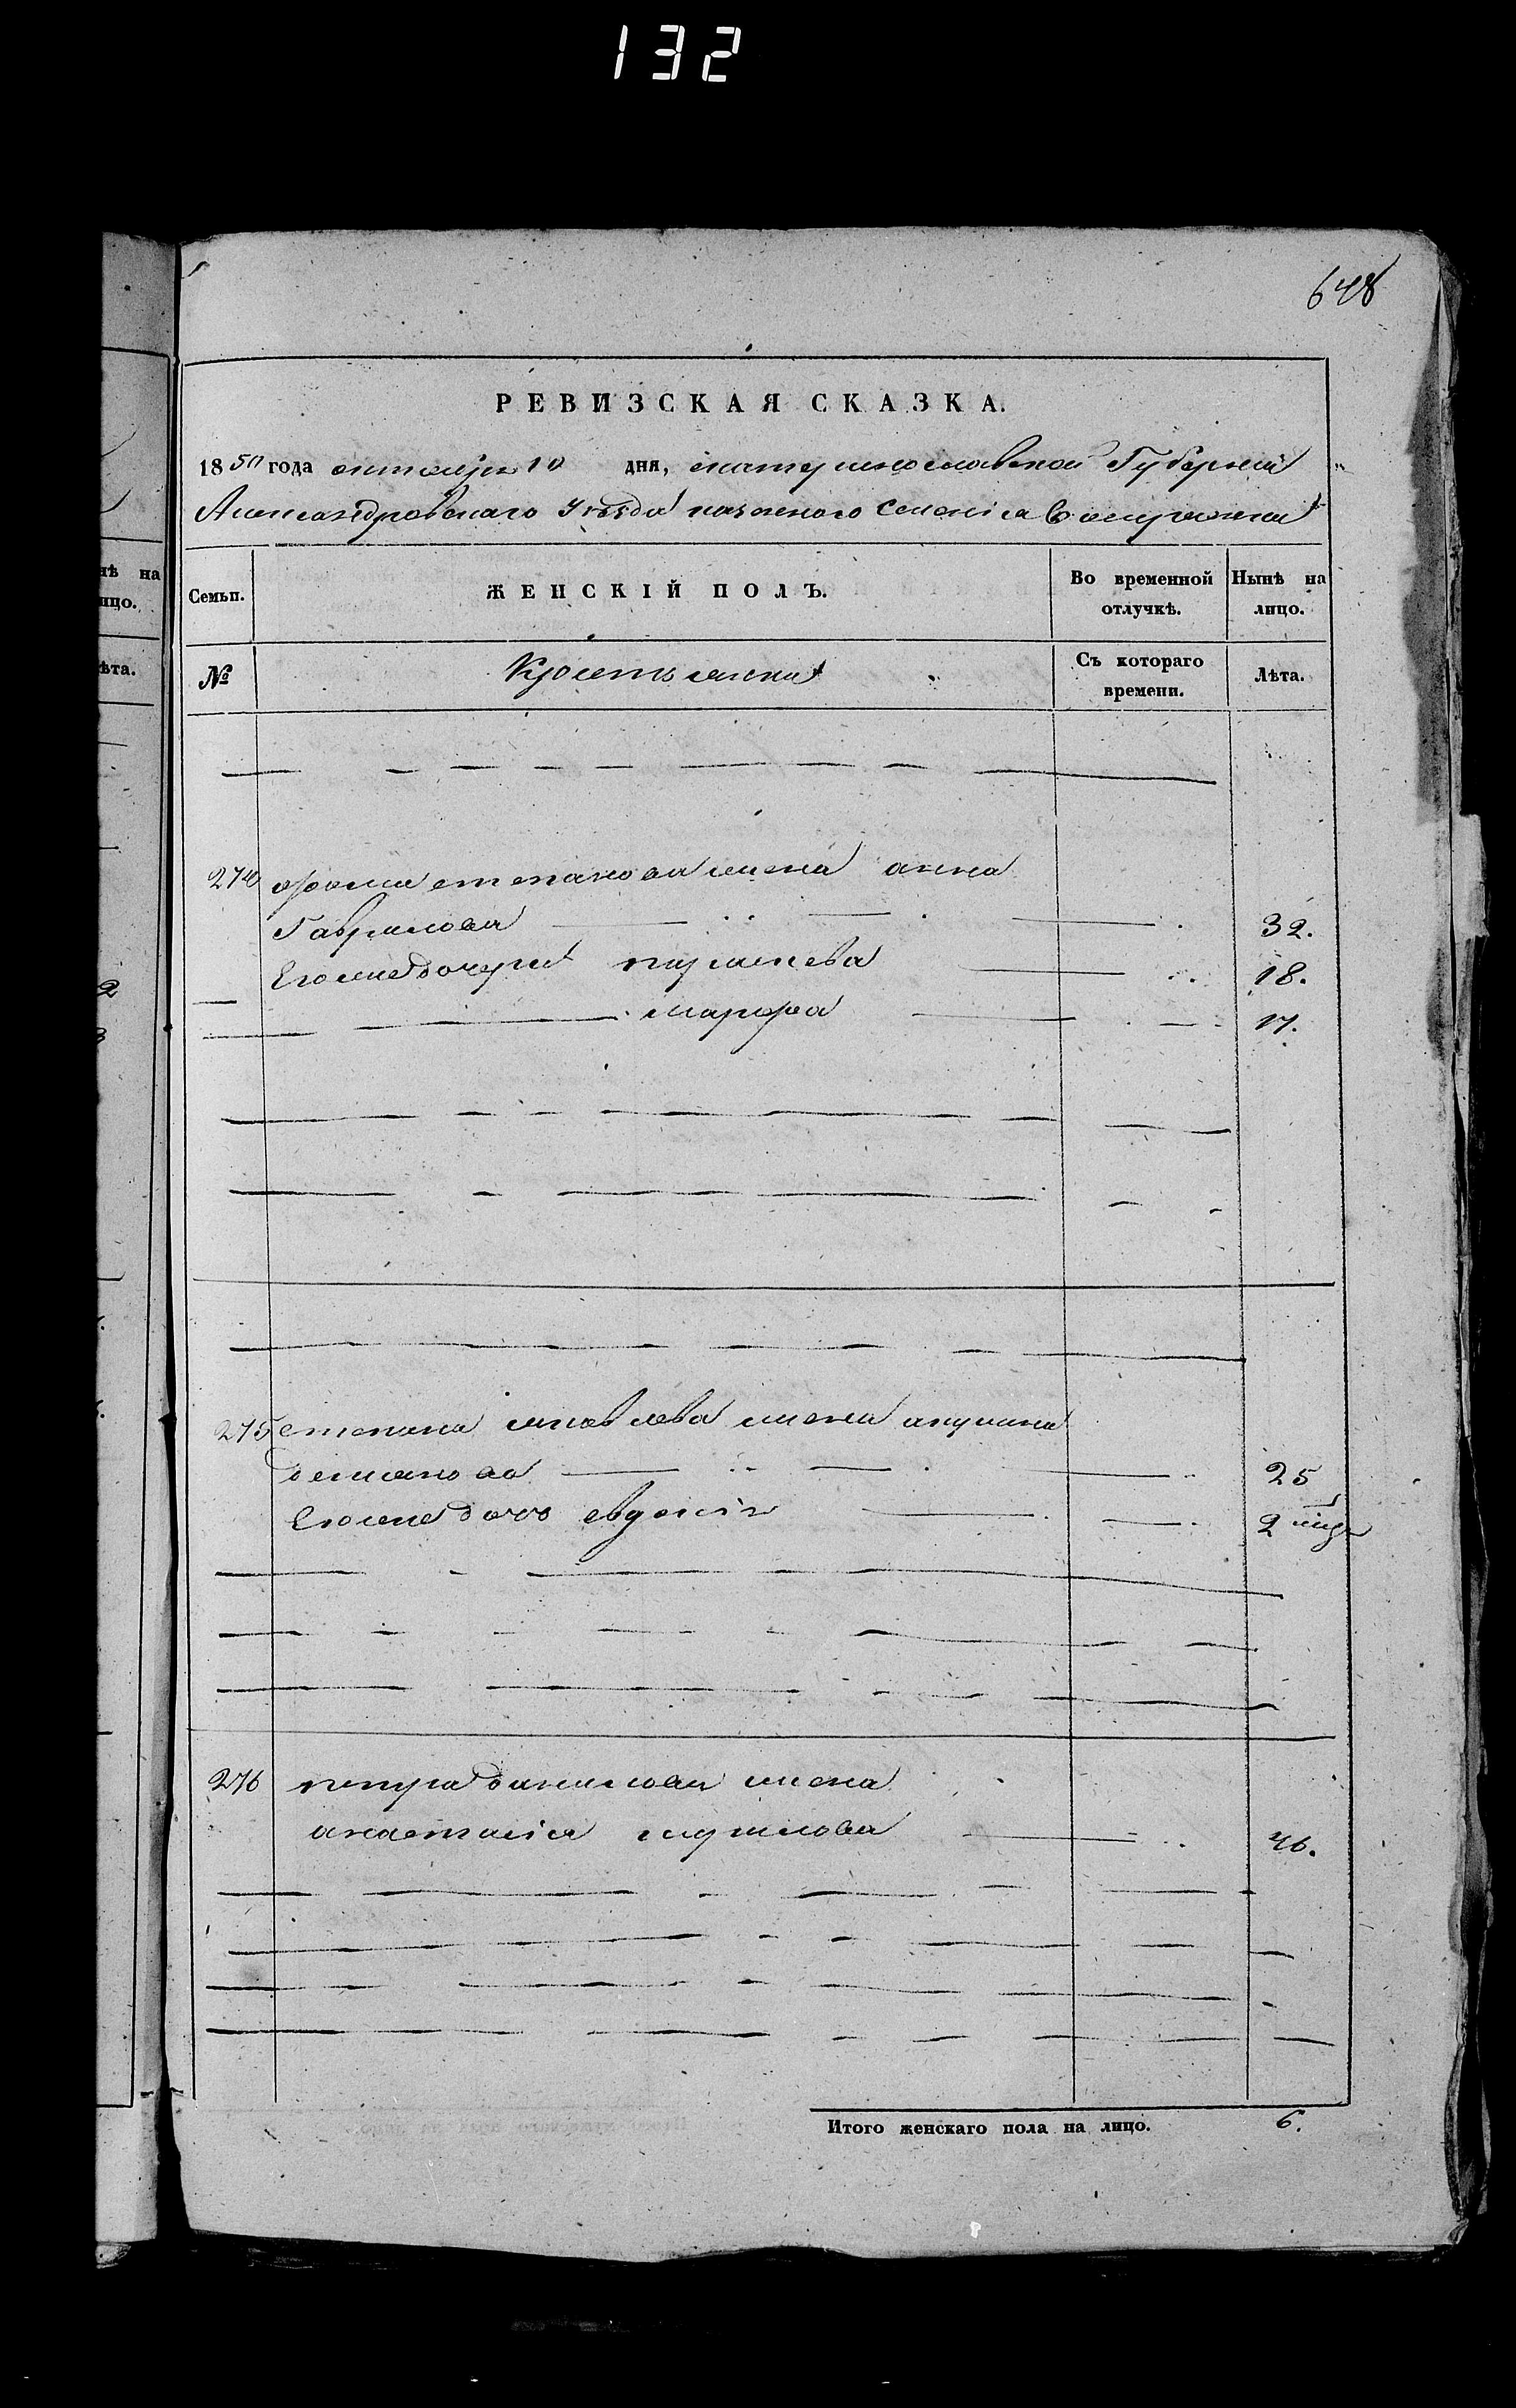 132
648
РЕВИЗСКАЯ СКАЗКА.
1850 года октября 10 дня, екатеринославской Губерніи
Александровскаго Уѣзда казенного Селенія
нѣ на
ицо.
ѣта.
Семьи.
ЖЕНСКІЙ ПОЛЪ.
Во временной отлучкѣ.
Нынѣ на лицо.
№
Крестьянки
Съ котораго времени.
Лѣта.
274 фомы степанова жена анна
Гаврилова 32.
Его же дочери параскева 18.
марфа 17.
275 степана яковлева жена акулина
демянова 25
Его же дочь евдокія 2
276 петра данилова жена
анастасія кирилова 46.
Итого женскаго пола на лицо. 6.